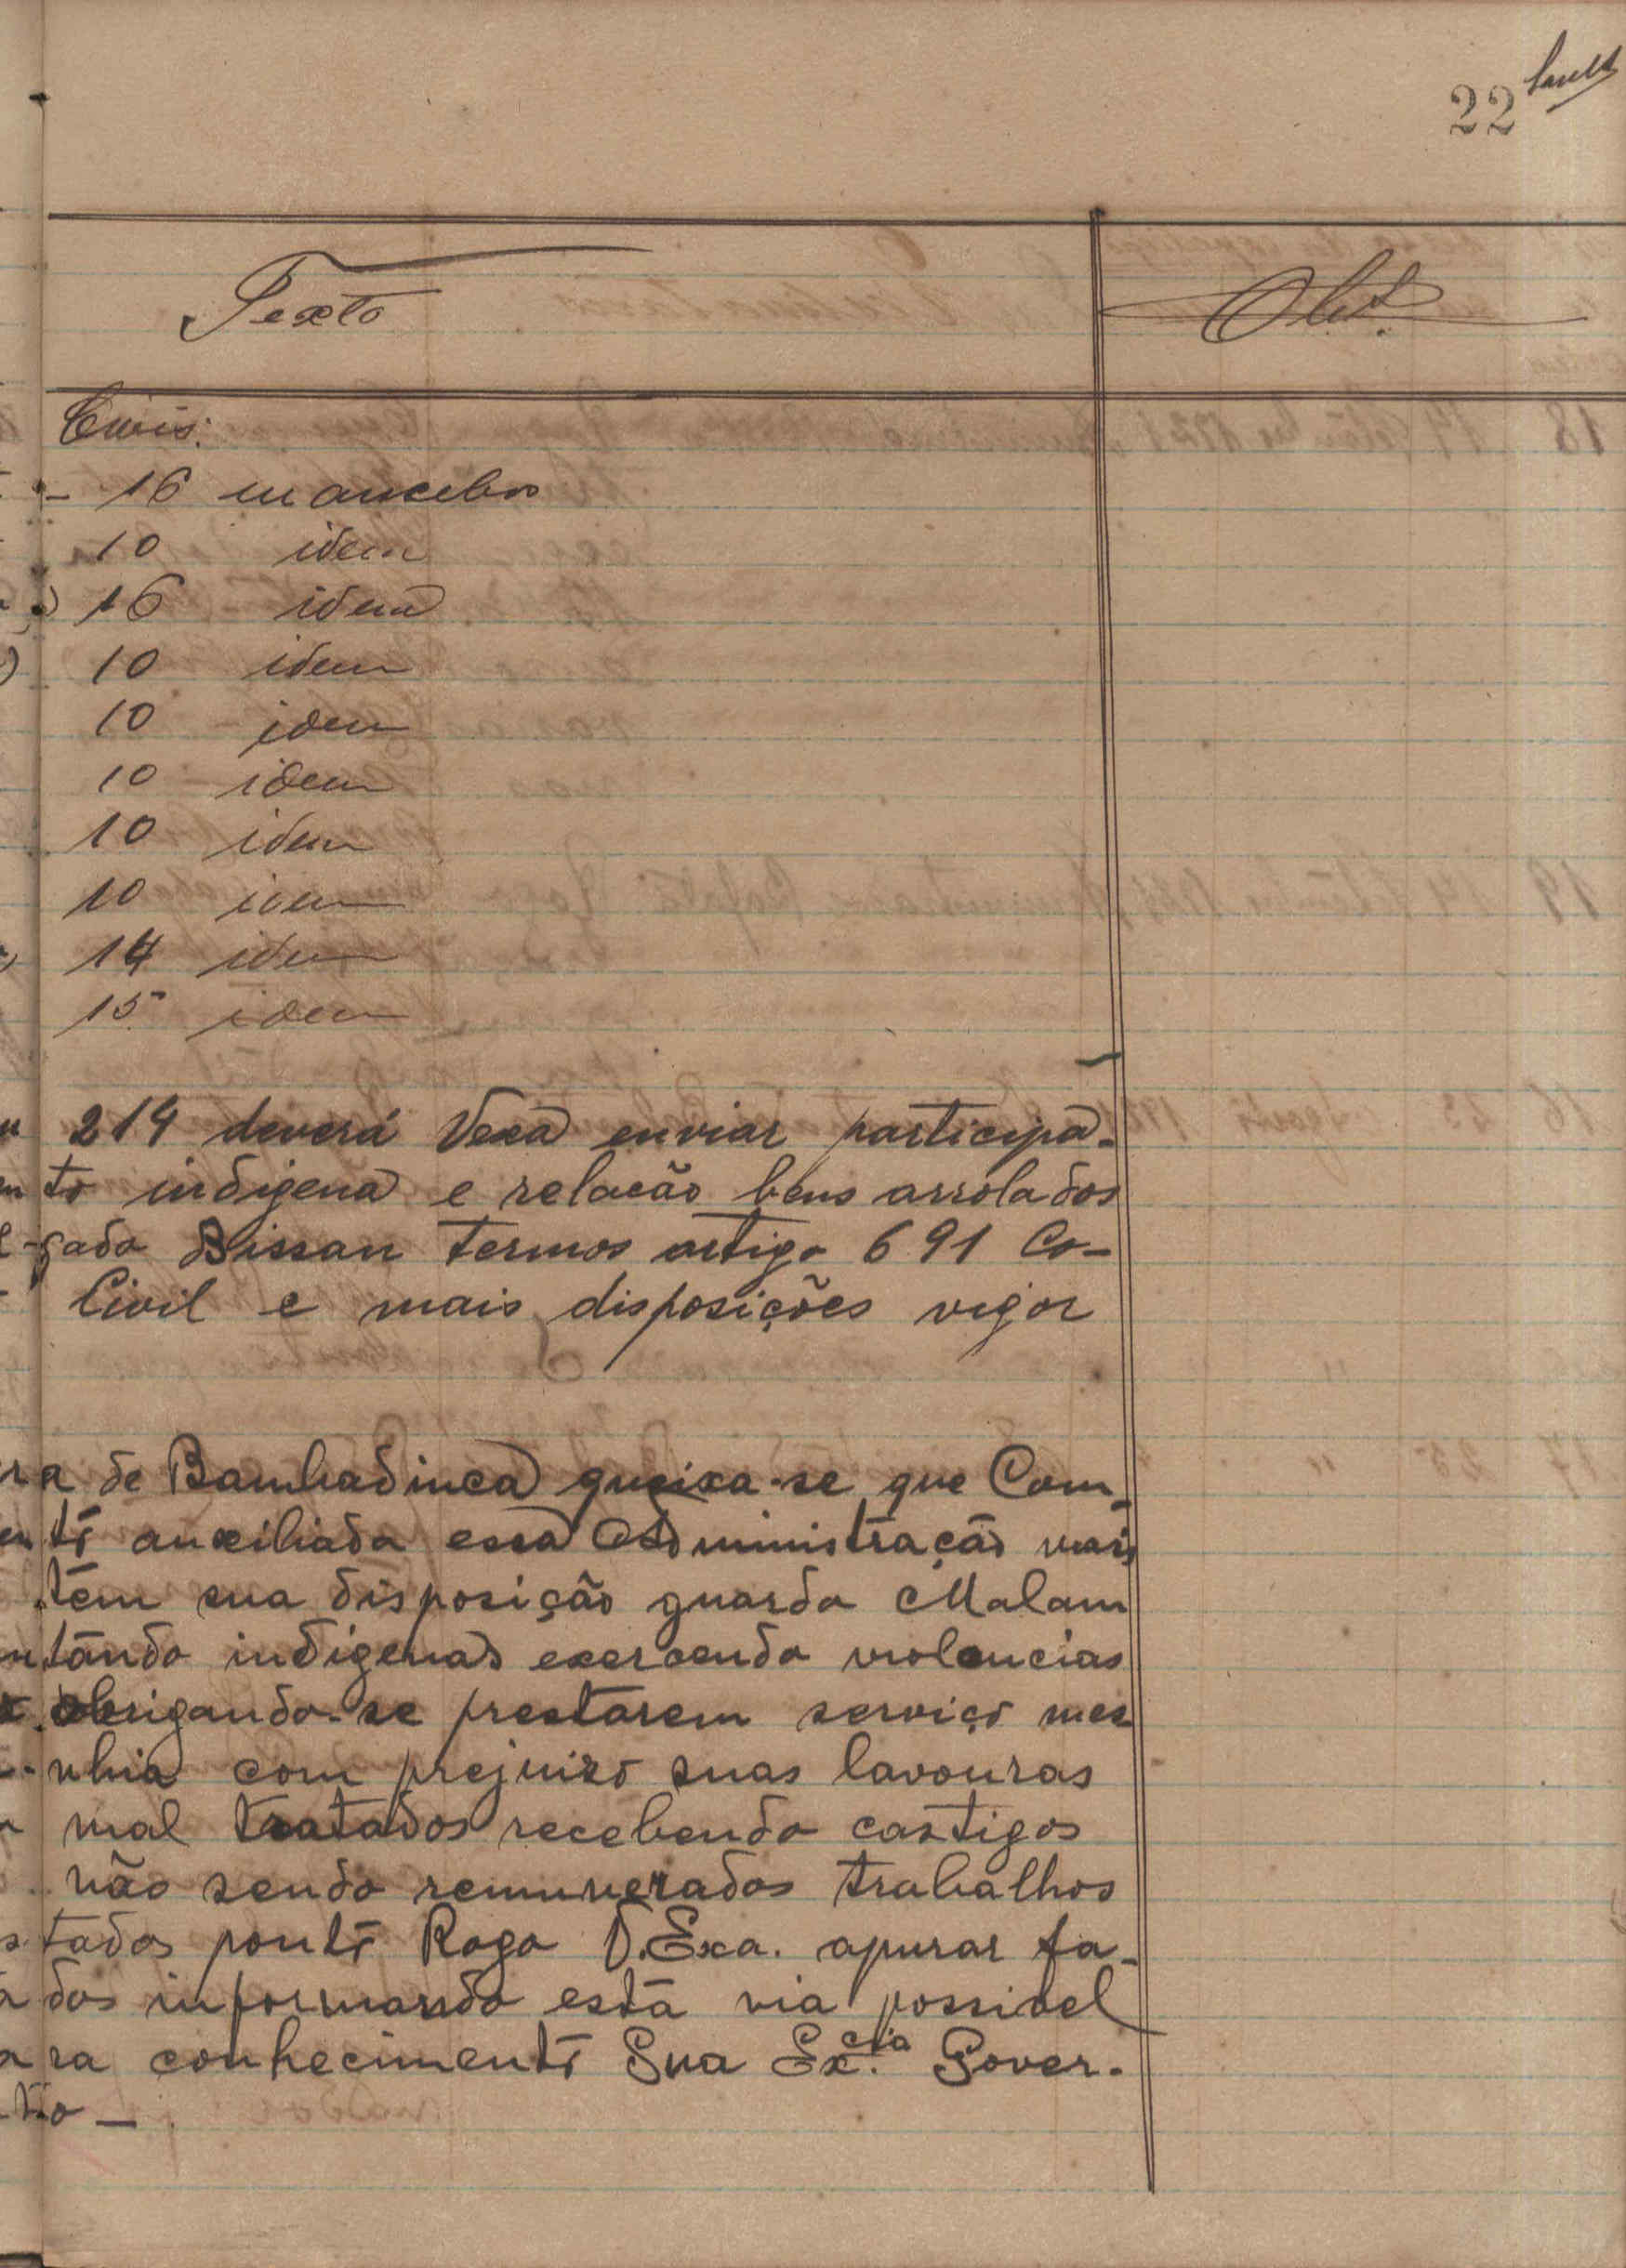 22
Texto
Obs.
Civis:
- 16 mancebos
10 idem
16 idem
10 idem
10 idem
10 idem
10 idem
10 idem
14 idem
15 idem
214 deverá Vexa enviar participa-
to indigena e relacão bens arrolados
gado Bissau termos artigo 691 Co-
Civil e mais disposições vigor
ra de Bambadinca queixa-se que Com-
to auxiliada essa Administração mais
tem sua disposição guarda Malam
tando indigenas exercendo violencias
obrigando-se prestarem serviço mes
nhia com prejuizo suas lavouras
mal tratados recebendo castigos
não sendo remunerados trabalhos
tados ponto Rogo V. Exa. apurar fa-
dos informando esta via possivel
ra conhecimento Sua Ex.cia Gover-
to —